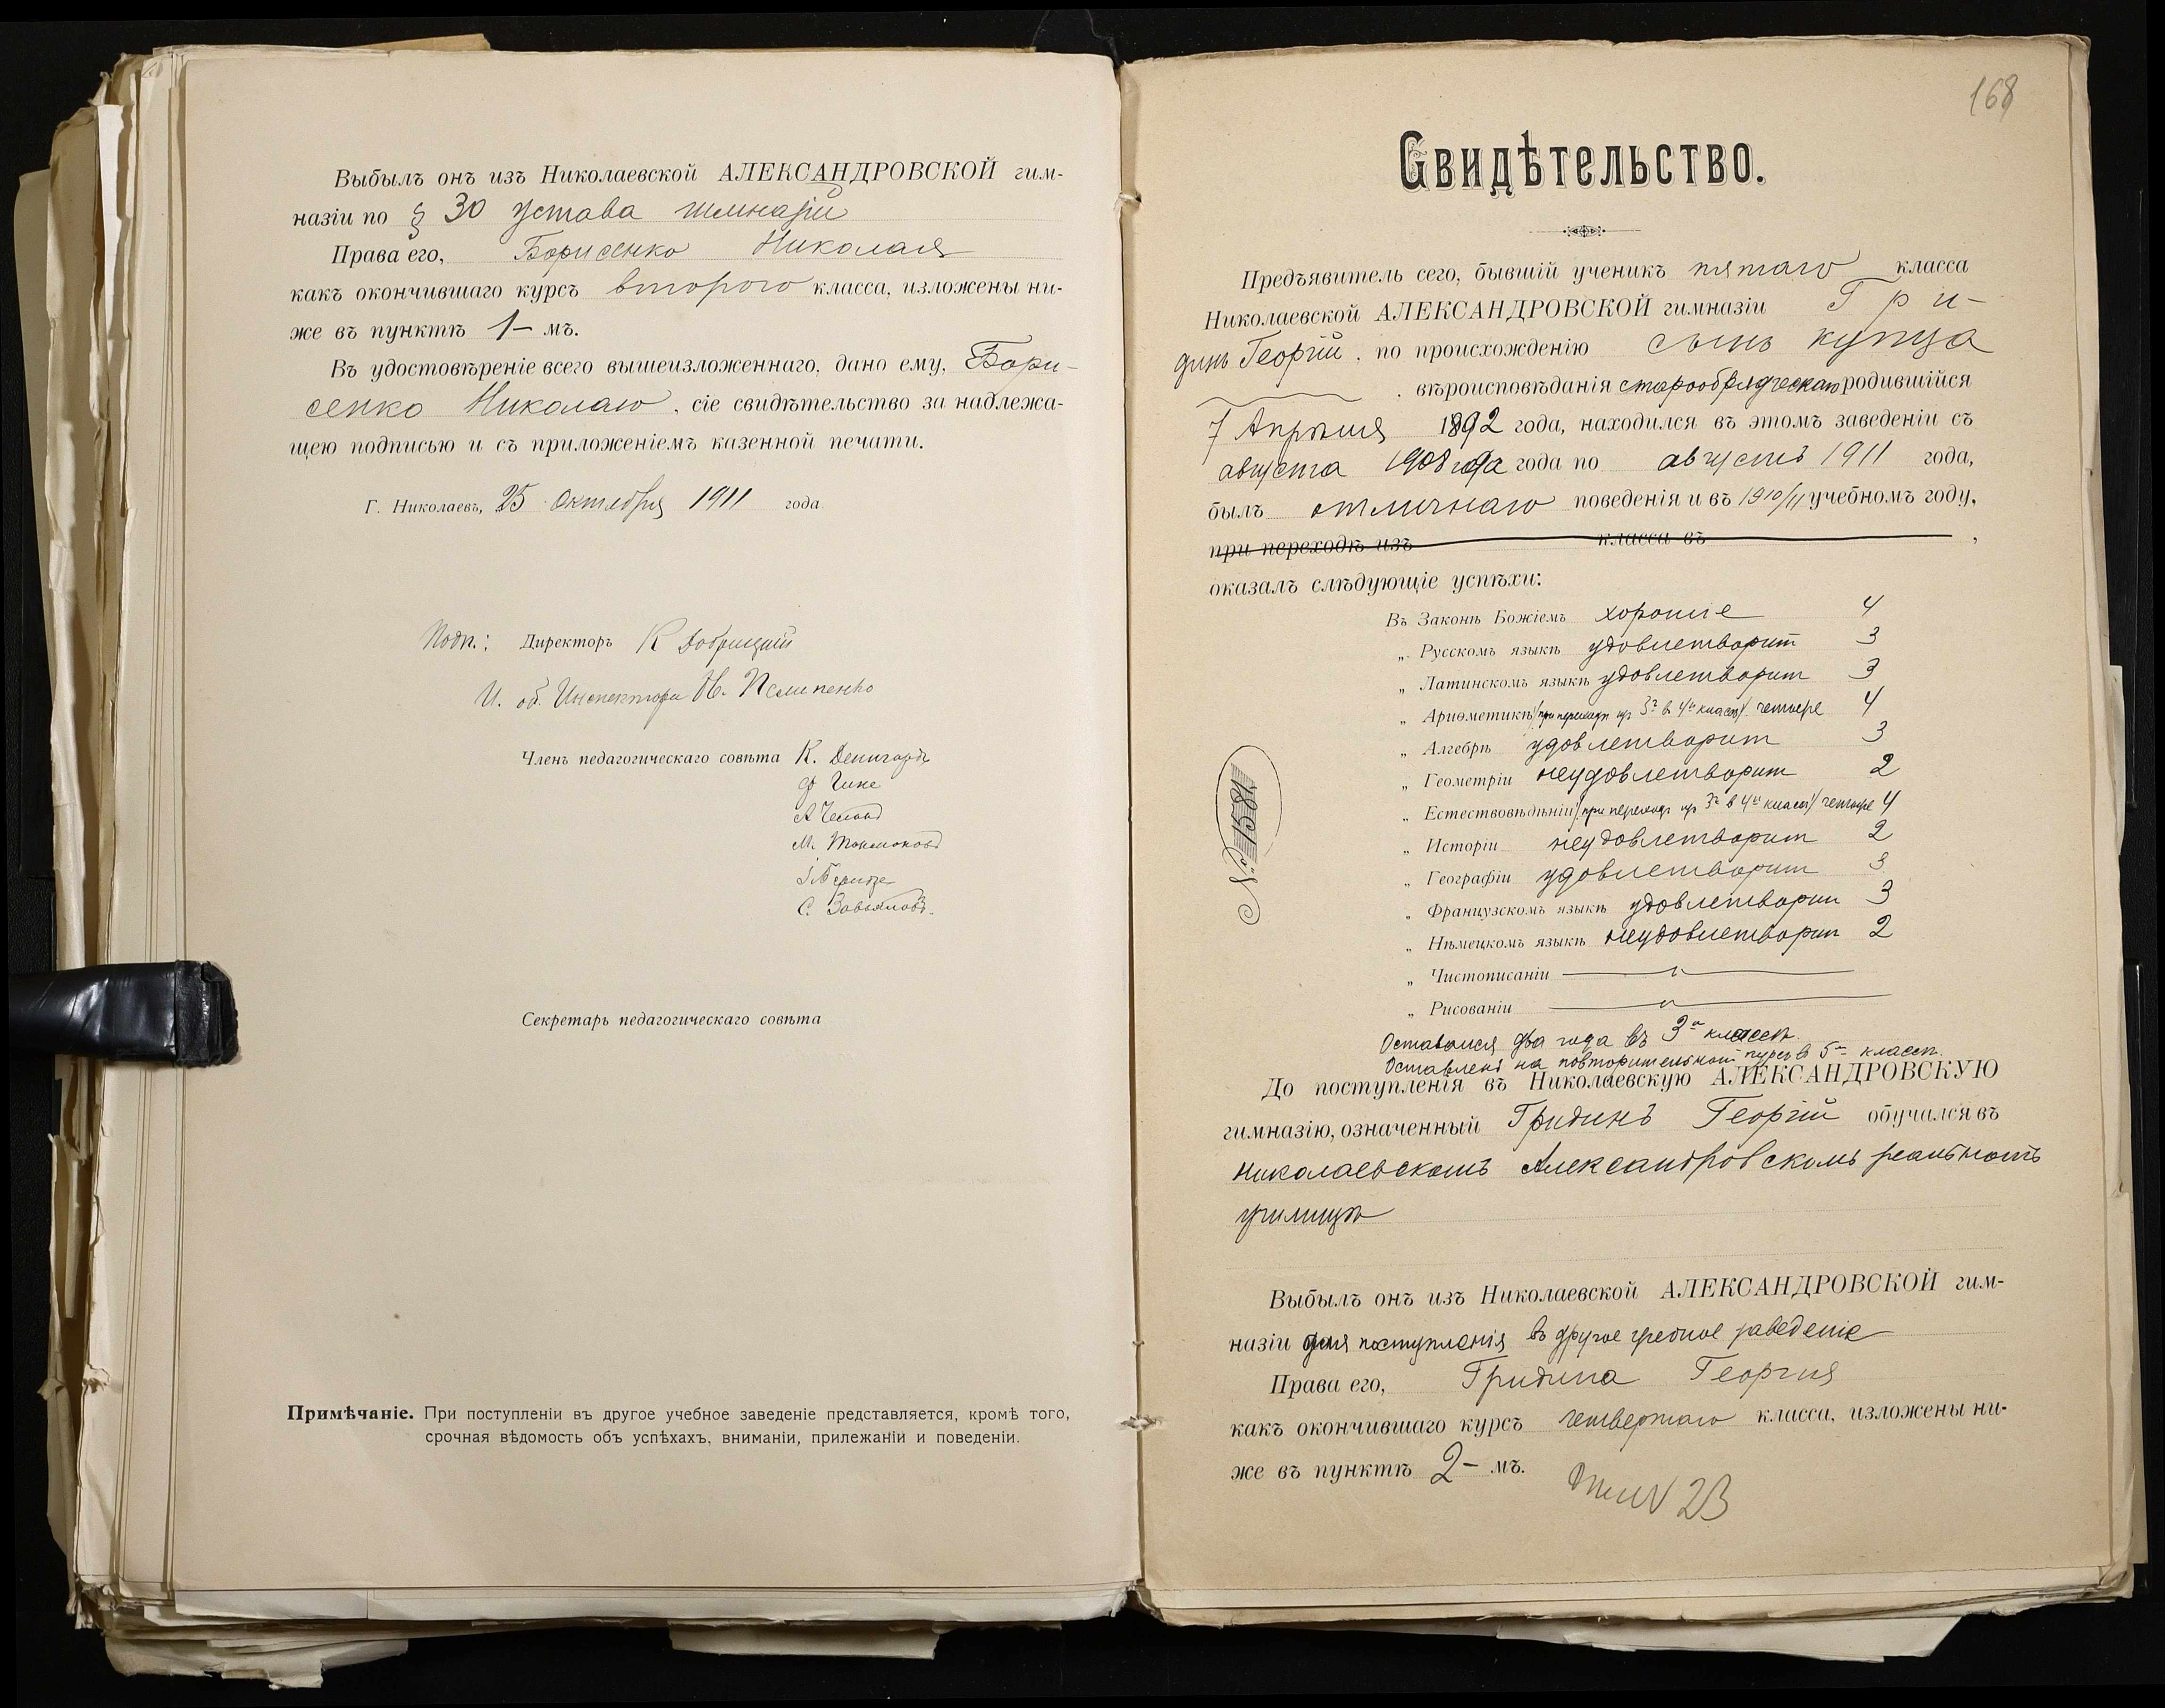 Выбылъ онъ изъ Николаевской АЛЕКСАНДРОВСКОЙ гим-
назіи по § 30 устава гимназій
Права его, Борисенко Николая
какъ окончившаго курсъ второго класса, изложены ни-
же въ пунктѣ 1- мъ.
Въ удостовѣреніе всего вышеизложеннаго, дано ему, Бори-
сенко Николаю, сіе свидѣтельство за надлежа-
щею подписью и съ приложеніемъ казенной печати.
Г. Николаевъ, 25 Октября 1911 года
Подп.: Директоръ К Добрицкій
И. об. Инспектора Н. Пелипенко
Членъ педагогическаго совѣта К.
С. Завьяловъ.
Секретарь педагогическаго совѣта
Примѣчаніе. При поступленіи въ другое учебное заведеніе представляется, кромѣ того,
срочная вѣдомость объ успѣхахъ, вниманіи, прилежаніи и поведеніи.
168
Свидѣтельство.
Предъявитель сего, бывшій ученикъ пятаго класса
Николаевской АЛЕКСАНДРОВСКОЙ гимназіи Гри-
динъ Георгій, по происхожденію сынъ купца
, вѣроисповѣданія старообрядческаго родившійся
7 Апрѣля 1892 года, находился въ этомъ заведеніи съ
августа 1908 года года по августъ 1911 года,
былъ отличнаго поведенія и въ 1910/11 учебномъ году,
при переходѣ изъ класса въ ,
оказалъ слѣдующіе успѣхи:
Въ Законѣ Божіемъ хорошіе 4
„ Русскомъ языкѣ удовлетворит 3
„ Латинскомъ языкѣ удовлетворит 3
„ Ариѳметикѣ (при переходѣ из 3го в 4й класс) четыре 4
„ Алгебрѣ удовлетворит 3
„ Геометріи неудовлетворит 2
„ Естествовѣдѣніи (при переходѣ из 3го в 4й класс) четыре 4
„ Исторіи неудовлетворит 2
„ Географіи удовлетворит 3
„ Французскомъ языкѣ удовлетворит 3
„ Нѣмецкомъ языкѣ неудовлетворит 2
„ Чистописаніи
„ Рисованіи
№ 1581
Оставался два года въ 3м классѣ.
Оставленъ на повторительный курсъ в 5м классѣ.
До поступленія въ Николаевскую АЛЕКСАНДРОВСКУЮ
гимназію, означенный Гридинъ Георгій обучался въ
Николаевскомъ Александровскомъ реальномъ
училищѣ
Выбылъ онъ изъ Николаевской АЛЕКСАНДРОВСКОЙ гим-
назіи для поступленія въ другое учебное заведеніе
Права его, Гридина Георгія
какъ окончившаго курсъ четвертаго класса, изложены ни-
же въ пунктѣ 2- мъ.
23